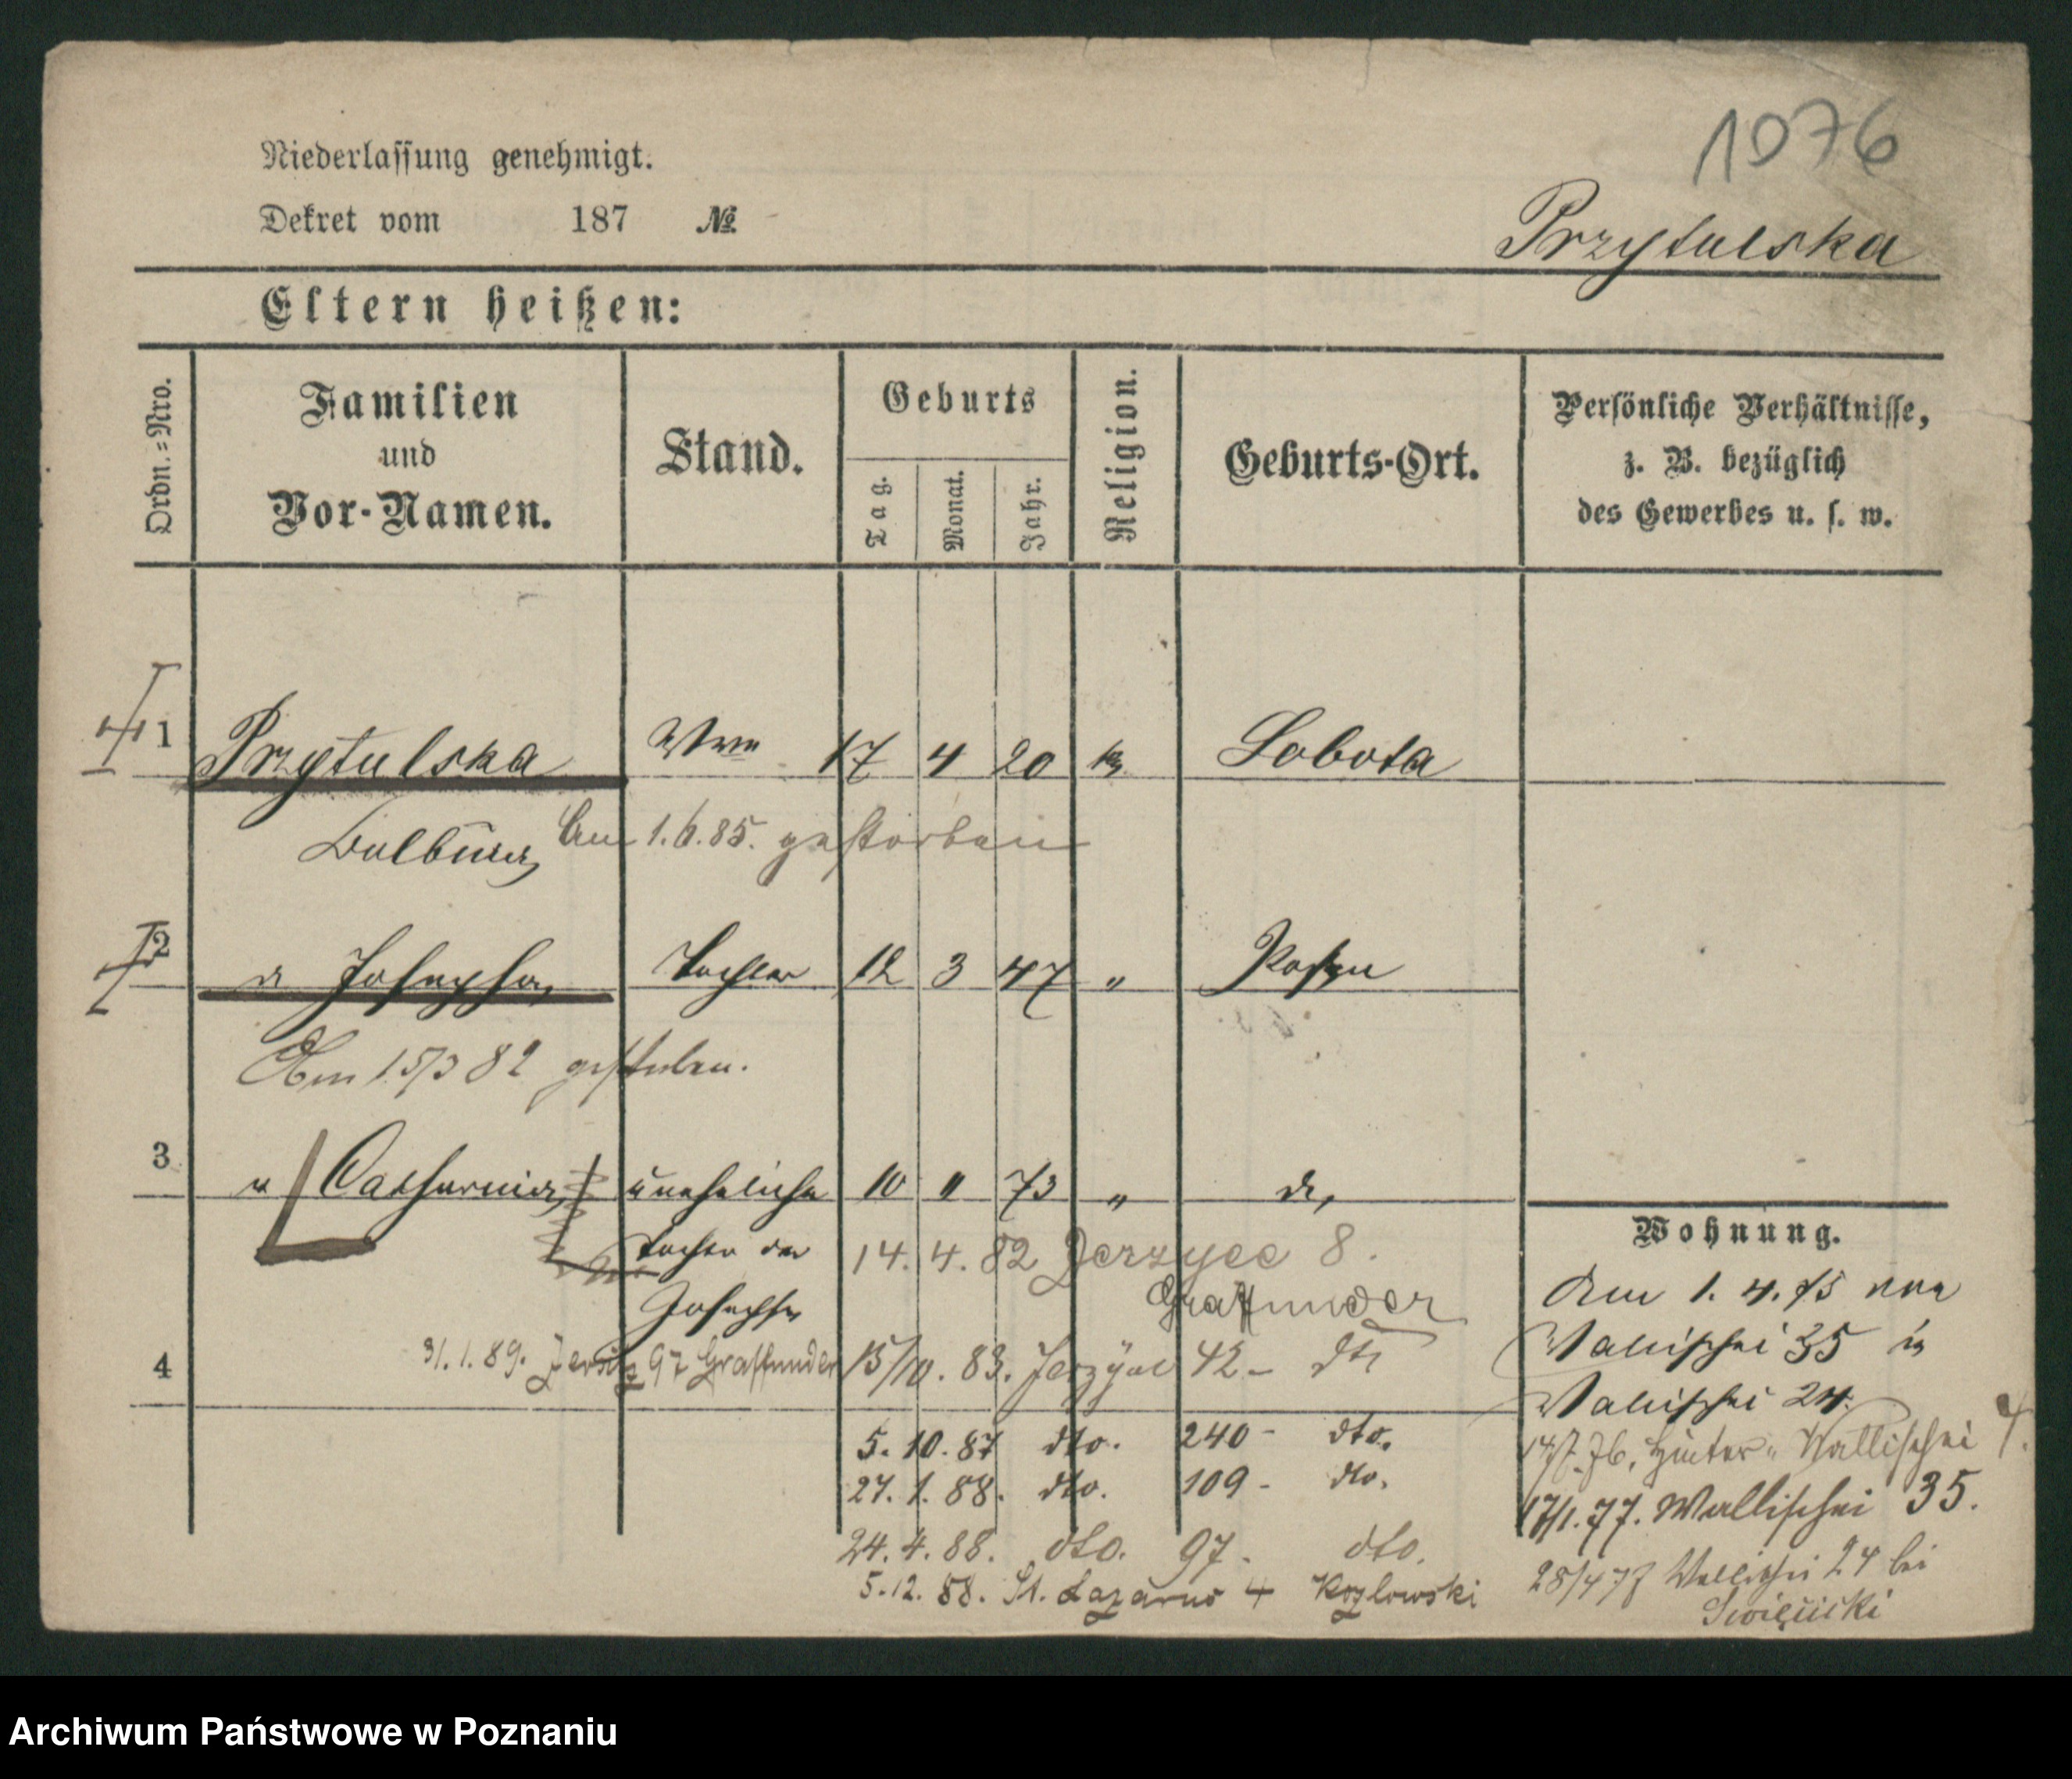 1076
Niederlassung genehmigt.
Dekret vom 187 №
Przytulska
Eltern heißen:
Ordn.=Nro.
Familien und Vor-Namen.
Stand.
Geburts
Tag.
Monat.
Jahr.
Religion.
Geburts-Ort.
Persönliche Verhältnisse,
z. B. bezüglich
des Gewerbes u. s. w.
1 Przytulska Wwe 17 4 20 Lobota
Am 1.6.85. gestorben
2 Josepha Tochter 12 3 47 " Posen
Am 15/3 82 gestorben.
3 " Catharina uneheliche 10 " 73 " do
Tochter der
Josepha
14. 4. 82 Jerzyce 8.
Graffunder
4
31.1.89. Jersitz 97 Graffunder
15/10. 83. Jerzyce 42- dto
5. 10. 87 dto. 240- dto.
27. 1. 88. dto. 109- dto.
24. 4. 88. dto. 97- dto.
5.12. 88. St. Lazarus 4 Kozlowski
Wohnung.
Am 1. 4. 75 von
Wallischei 35 in
Wallischei 24.
14/7. 76. Hinter-Wallischei 4.
17/1. 77. Wallischei 35.
28/4 78 Wallischei 24 bei
Archiwum Państwowe w Poznaniu